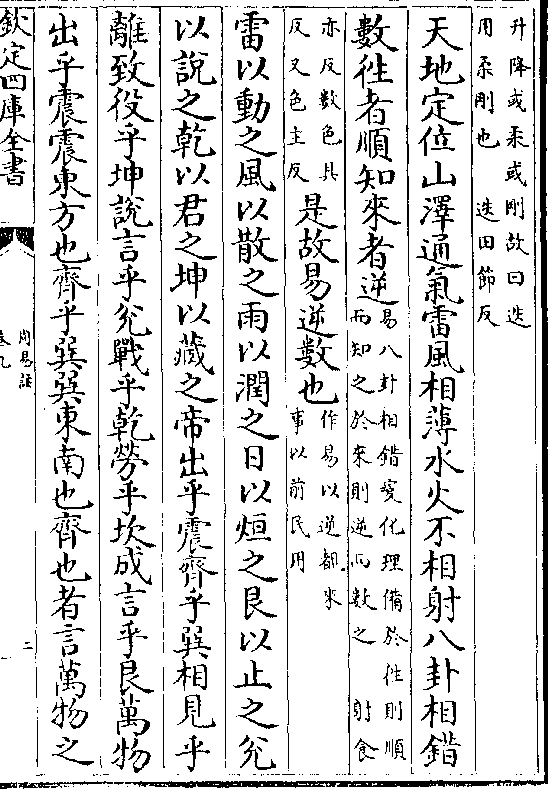 升降或柔或剛故曰迭
用柔剛也　迭田節反
天地定位山澤通氣雷風相薄水火不相射八卦相錯
數徃者順知來者逆
易八卦相錯變化理備於徃則順
而知之於來則逆而數之　射食
亦反數色具
反又色主反
是故易逆數也
作易以逆覩來
事以前民用
雷以動之風以散之雨以潤之日以烜之艮以止之兊
以說之乾以君之坤以藏之帝出乎震齊乎巽相見乎
離致役乎坤說言乎兊戰乎乾勞乎坎成言乎艮萬物
出乎震震東方也齊乎巽巽東南也齊也者言萬物之
欽定四庫全書
周易註
卷九
二